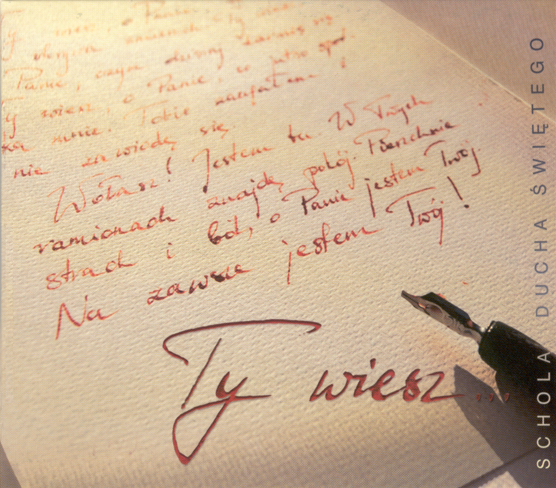 Ty wiesz, o Panie, Ty
Panie, czym dzisiaj zajmuję się
Ty wiesz, o Panie, co jutro spot-
ka mnie. Tobie zaufałem i
nie zawiodę się
Wołasz! Jestem tu. W Twych
ramionach znajdę pokój. Pierzchnie
strach i ból, o Panie jestem Twój.
Na zawsze jestem Twój!
Ty wiesz...
SCHOLA DUCHA ŚWIĘTEGO